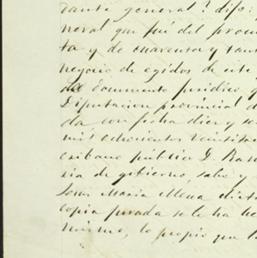 dante general? dijo:
noral que fué del procu
ta y de cuarenta y tan
negocio de egidos de este
documento juridico q
Diputacion provincial d
da con fecha diez y se
mil ochocientos veintitan
cribano público D. Ram
ria de gobierno, sabe y
Jesus Maria Mena
copia privada se le ha he
mismo, lo propio que